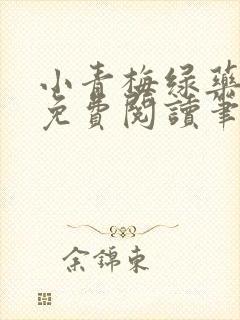 小青梅绿药
免費閱讀筆
余錦東